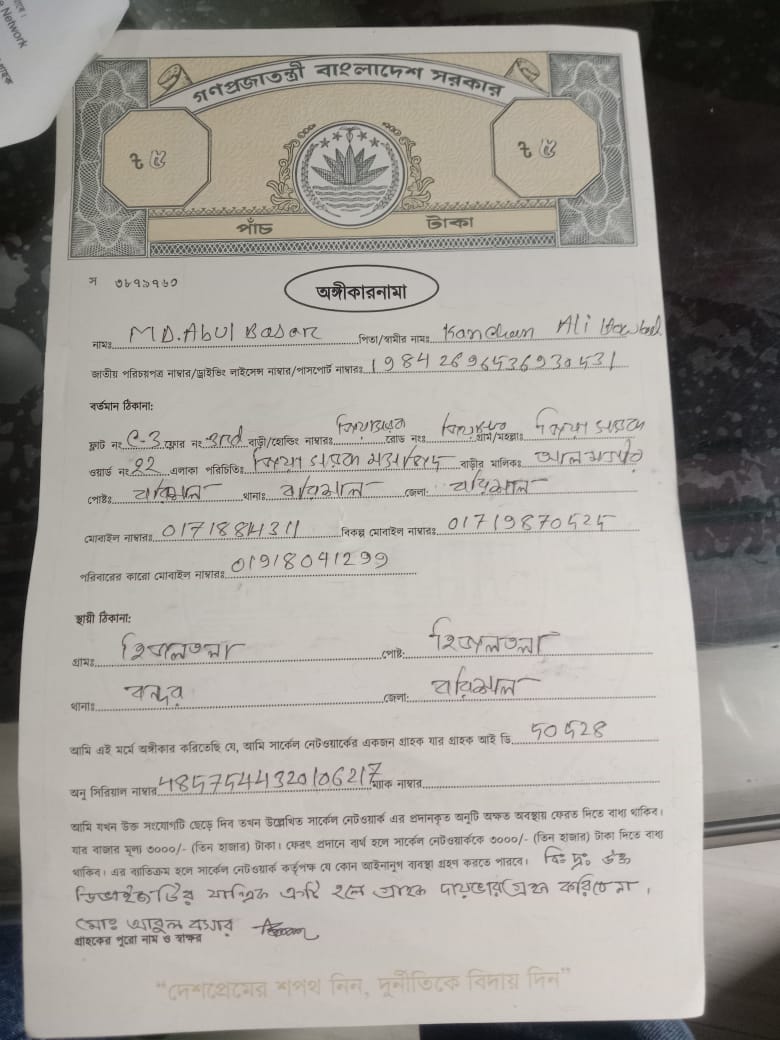 Network
গণপ্রজাতন্ত্রী বাংলাদেশ সরকার
৳ ৫ ৳ ৫
পাঁচ টাকা
স ৩৮৭১৭৬০
অঙ্গীকারনামা
নামঃ MD. Abul Basar পিতা/স্বামীর নামঃ Kanchan Ali
জাতীয় পরিচয়পত্র নাম্বার/ড্রাইভিং লাইসেন্স নাম্বার/পাসপোর্ট নাম্বারঃ 19842696536930531
বর্তমান ঠিকানা:
ফ্লাট নং C-3 ফ্লোর নং 3nd বাড়ী/হোল্ডিং নাম্বারঃ রোড নংঃ গ্রাম/মহল্লাঃ জিয়া সড়ক
ওয়ার্ড নং 22 এলাকা পরিচিতিঃ জিয়া সড়ক মসজিদ বাড়ীর মালিকঃ
পোষ্টঃ বরিশাল থানাঃ বরিশাল জেলা: বরিশাল
মোবাইল নাম্বারঃ 0171884311 বিকল্প মোবাইল নাম্বারঃ 01719870525
পরিবারের কারো মোবাইল নাম্বারঃ 01918041299
স্থায়ী ঠিকানা:
গ্রামঃ হিজলতলা পোষ্ট: হিজলতলা
থানাঃ বন্দর জেলা: বরিশাল
আমি এই মর্মে অঙ্গীকার করিতেছি যে, আমি সার্কেল নেটওয়ার্কের একজন গ্রাহক যার গ্রাহক আই ডি 50528
অনু সিরিয়াল নাম্বার 4857544320106217 ম্যাক নাম্বার
আমি যখন উক্ত সংযোগটি ছেড়ে দিব তখন উল্লেখিত সার্কেল নেটওয়ার্ক এর প্রদানকৃত অনুটি অক্ষত অবস্থায় ফেরত দিতে বাধ্য থাকিব।
যার বাজার মূল্য ৩০০০/- (তিন হাজার) টাকা। ফেরৎ প্রদানে ব্যর্থ হলে সার্কেল নেটওয়ার্ককে ৩০০০/- (তিন হাজার) টাকা দিতে বাধ্য
থাকিব। এর ব্যতিক্রম হলে সার্কেল নেটওয়ার্ক কর্তৃপক্ষ যে কোন আইনানুগ ব্যবস্থা গ্রহণ করতে পারবে। বিঃ দ্রঃ উক্ত
ডিভাইজটির যান্ত্রিক ত্রুটি হলে গ্রাহক দায়ভার গ্রহন করিবে না।
মোঃ আবুল বসার
গ্রাহকের পুরো নাম ও স্বাক্ষর
“দেশপ্রেমের শপথ নিন, দুর্নীতিকে বিদায় দিন”